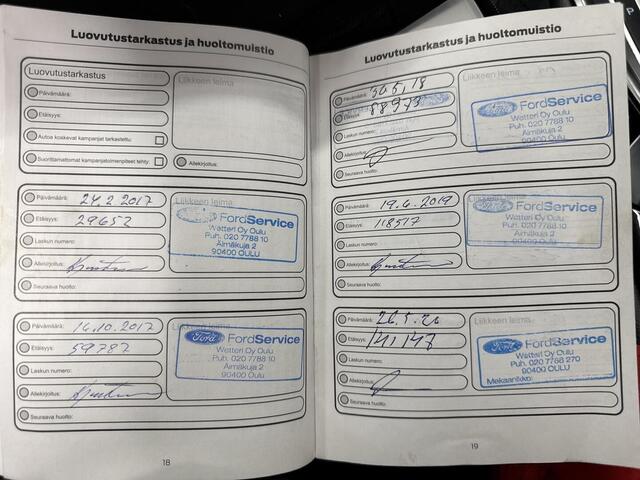 Luovutustarkastus ja huoltomuistio
Luovutustarkastus
Liikkeen leima
Päivämäärä:
Etäisyys:
Autoa koskevat kampanjat tarkastettu:
Suorittamattomat kampanjatoimenpiteet tehty:
Allekirjoitus:
Päivämäärä: 24.2 2017
Etäisyys: 29652
Laskun numero:
Allekirjoitus:
Seuraava huolto:
Liikkeen leima
FordService
Wetteri Oy Oulu
Puh. 020 7788 10
Äimäkuja 2
90400 OULU
Päivämäärä: 16.10.2017
Etäisyys: 59787
Laskun numero:
Allekirjoitus:
Seuraava huolto:
Liikkeen leima
Ford FordService
Wetteri Oy Oulu
Puh. 020 7788 10
Äimäkuja 2
90400 Oulu
18
Luovutustarkastus ja huoltomuistio
Päivämäärä: 30.5,18
Etäisyys: 88973
Laskun numero:
Allekirjoitus:
Seuraava huolto:
Liikkeen leima
Ford FordService
Wetteri Oy Oulu
Puh. 020 7788 10
Äimäkuja 2
90400 Oulu
Päivämäärä: 19.6.2019
Etäisyys: 118517
Laskun numero:
Allekirjoitus:
Seuraava huolto:
Liikkeen leima
FordService
Wetteri Oy Oulu
Puh. 020 7788 10
Äimäkuja 2
90400 OULU
Päivämäärä:
Etäisyys: 141147
Laskun numero:
Allekirjoitus:
Seuraava huolto:
Liikkeen leima
Ford FordService
Wetteri Oy Oulu
Puh. 020 7788 270
90400 OULU
Mekaanikko:
19